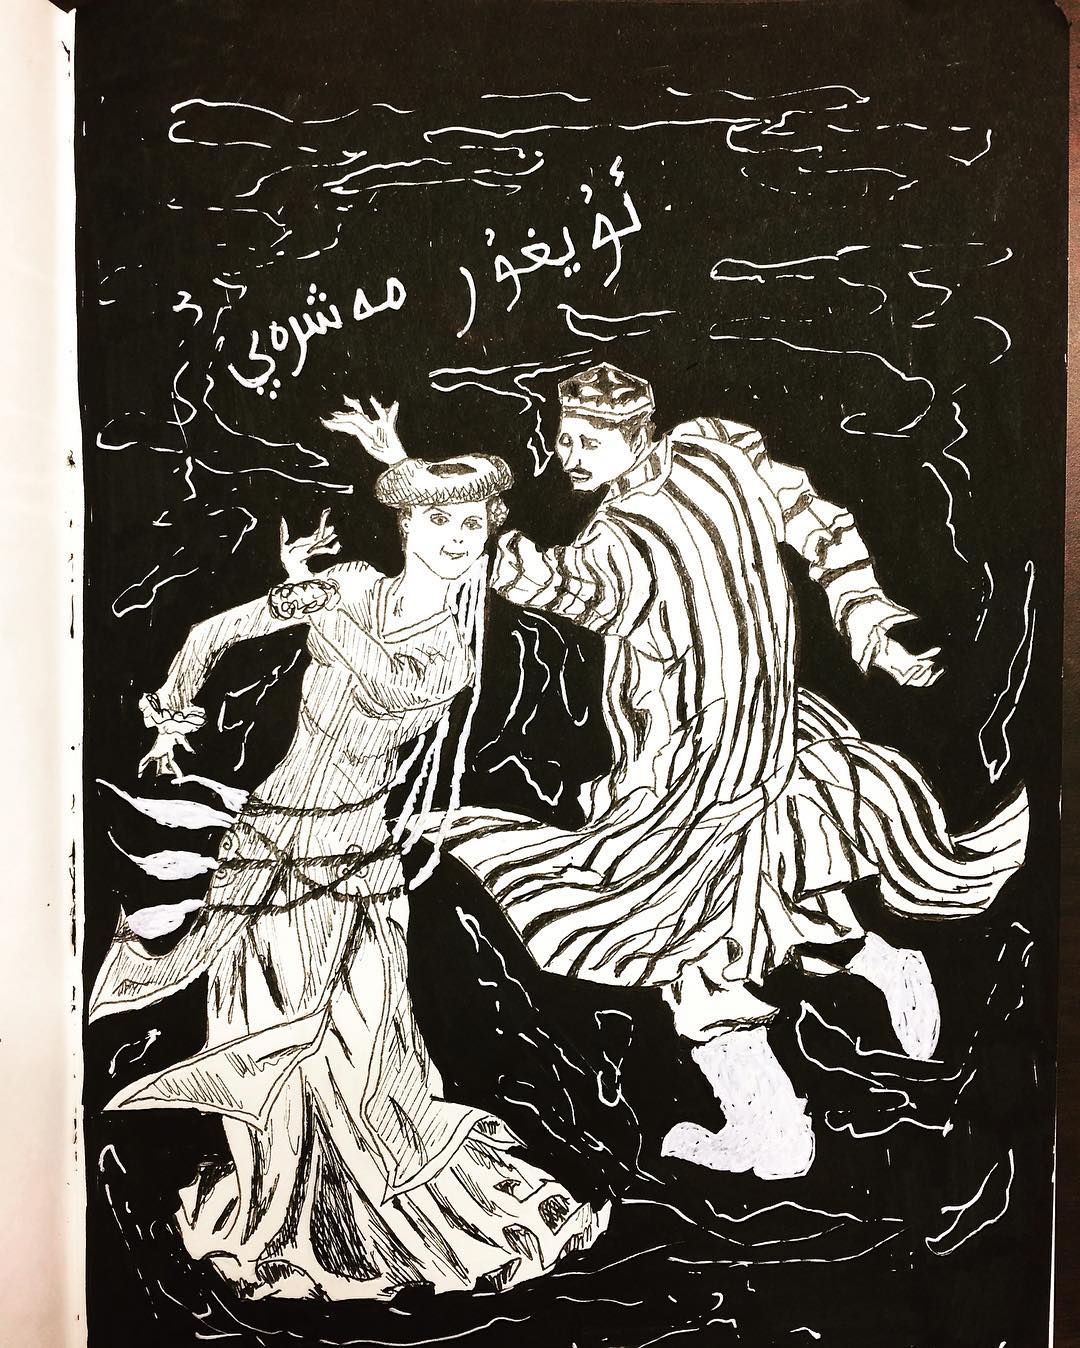 ئۇيغۇر مەشرەپي